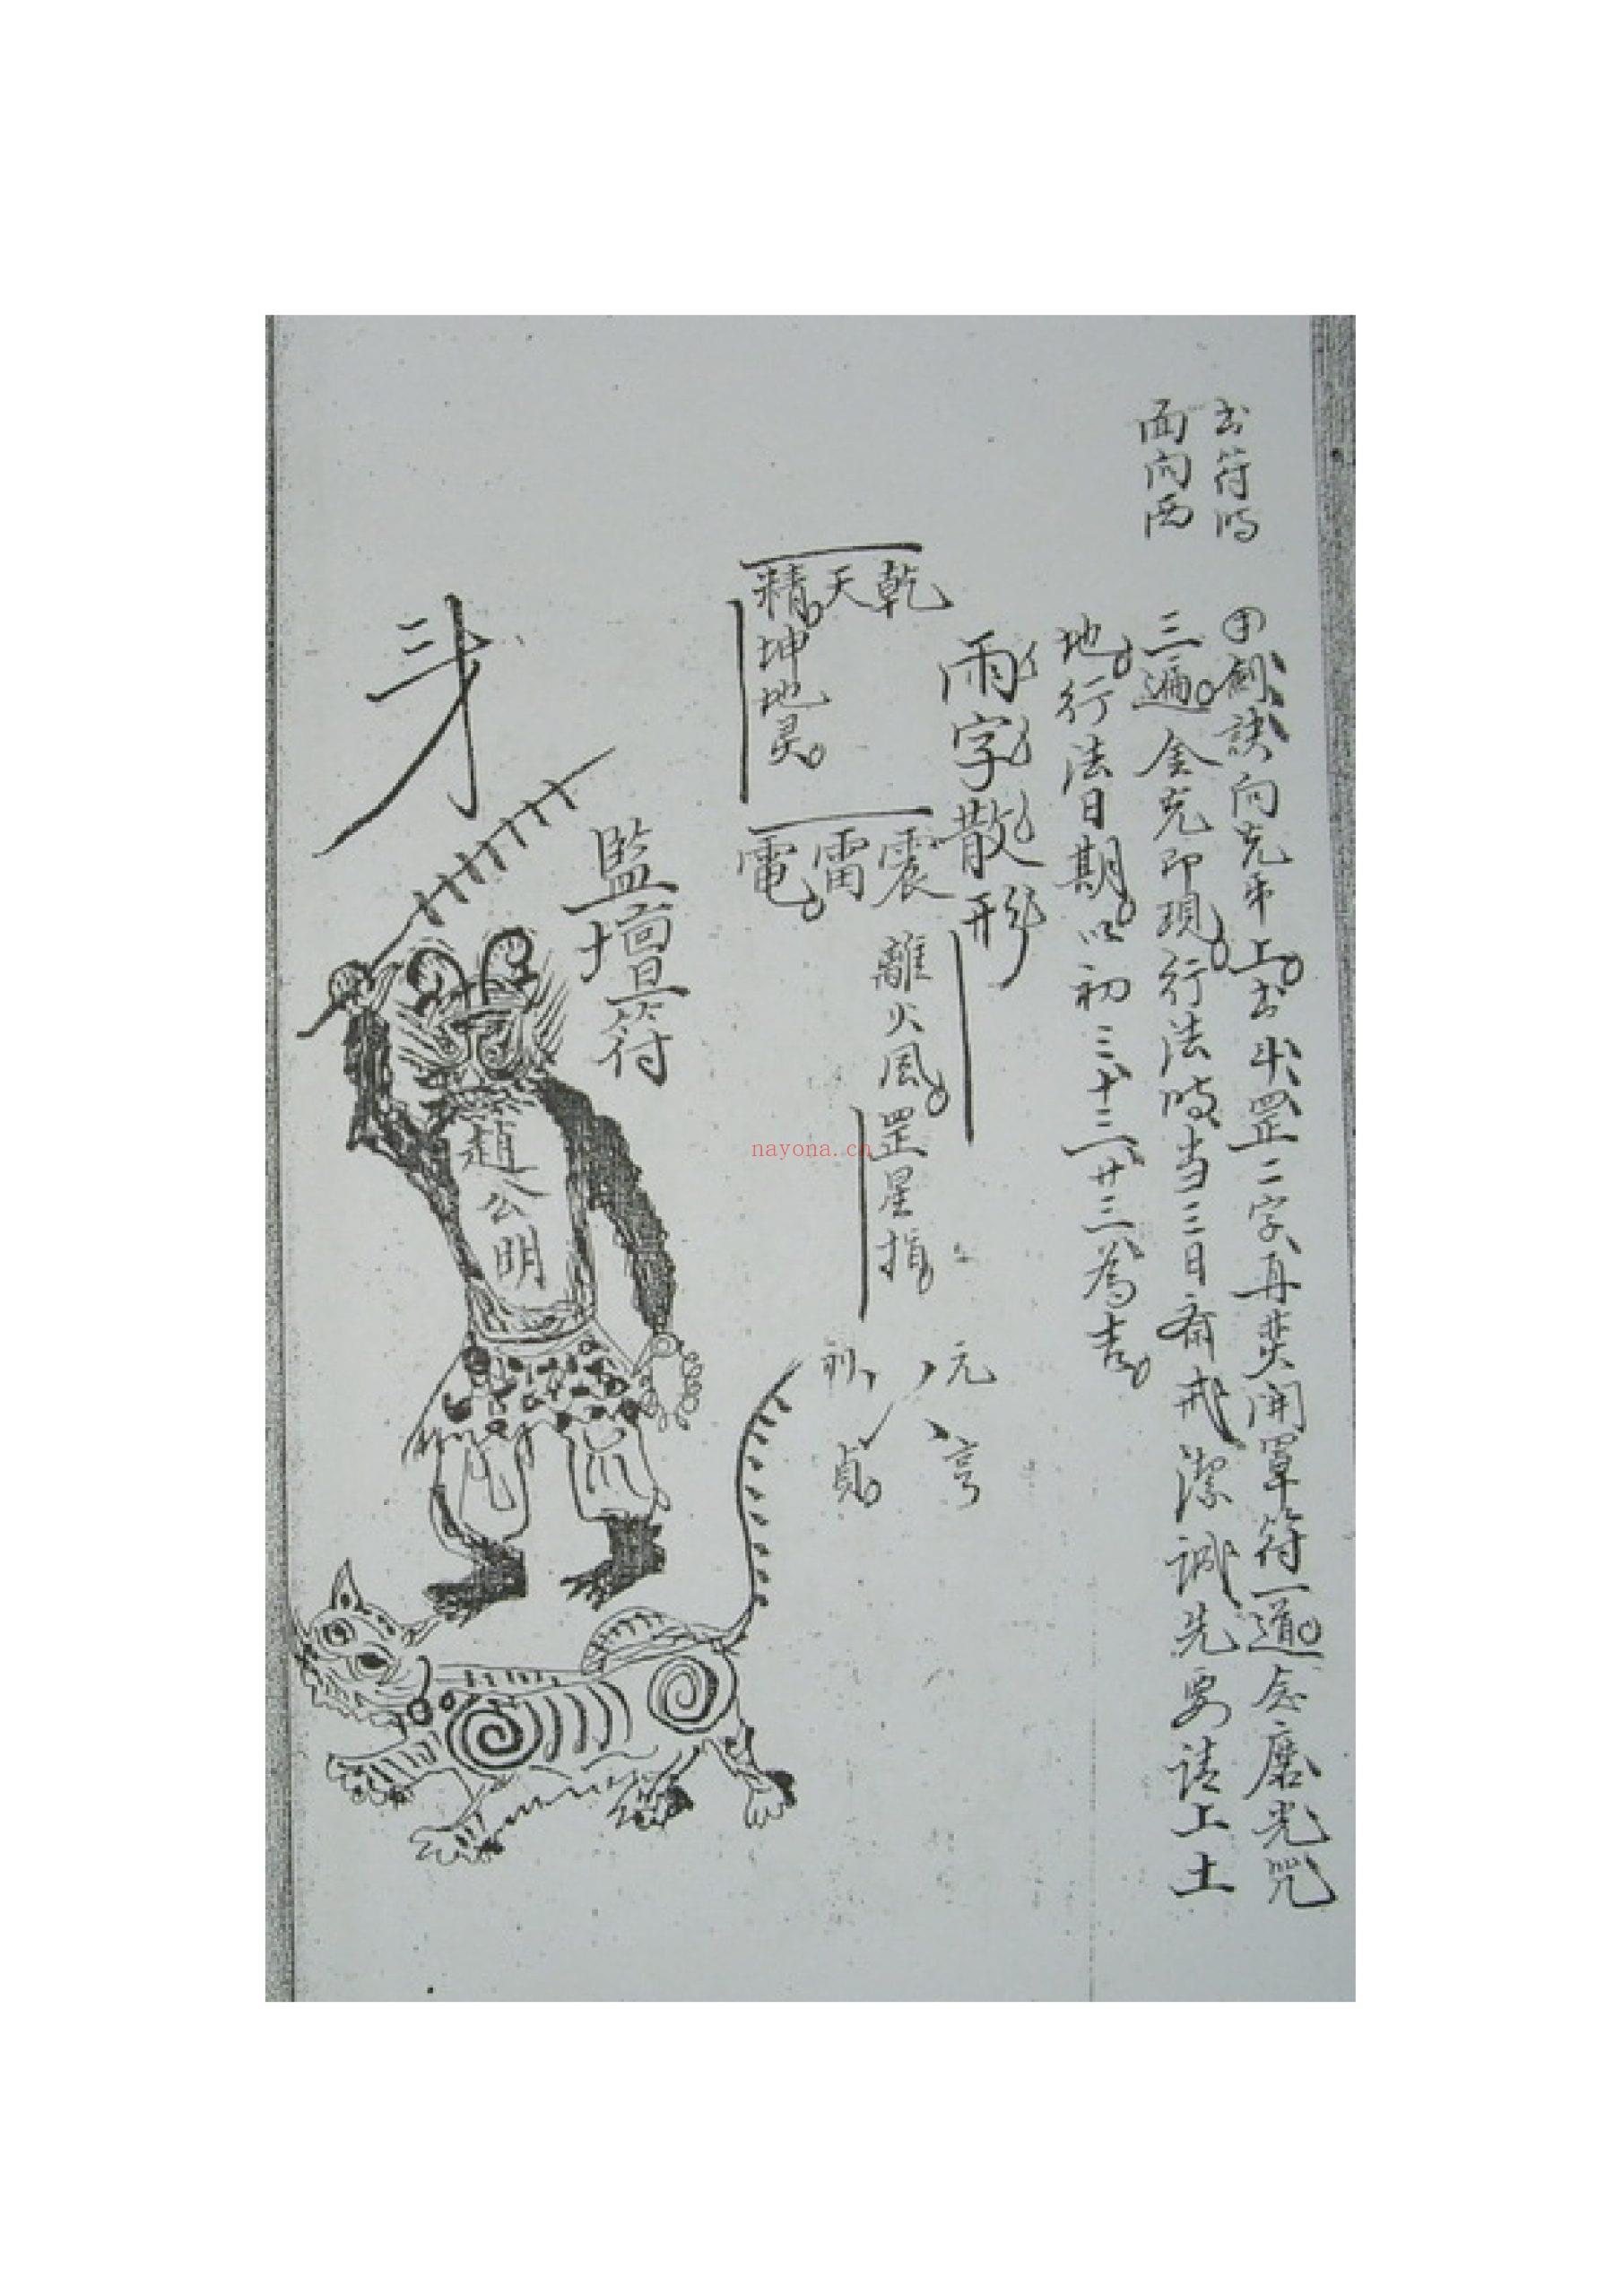 书符时
面向西
用剑诀向克弟上。书斗罡二字。再焚開罩符一道。念磨光咒
三遍。金克即現。行法時当三日斋戒潔诚。先要请上土
地。行法日期。以初三、十三、廿三為吉。
雨字散形
乾天精。坤地灵。
震雷電。離火風。罡星指。
元
亨
利
貞。
監壇符
趙公明
nayona.cn